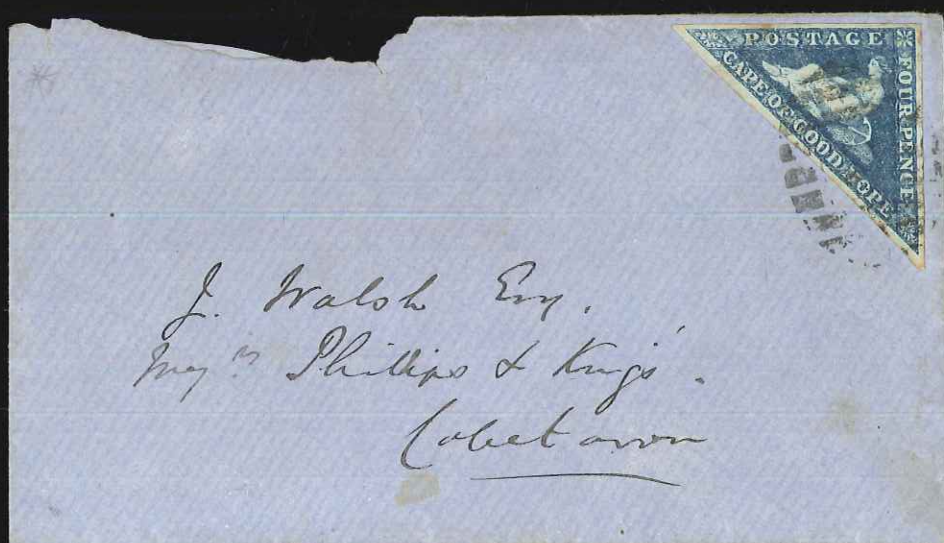 POSTAGE
FOUR PENCE
CAPE OF GOOD HOPE
J. Walsh Esq.
Phillips & King's.
Capetown